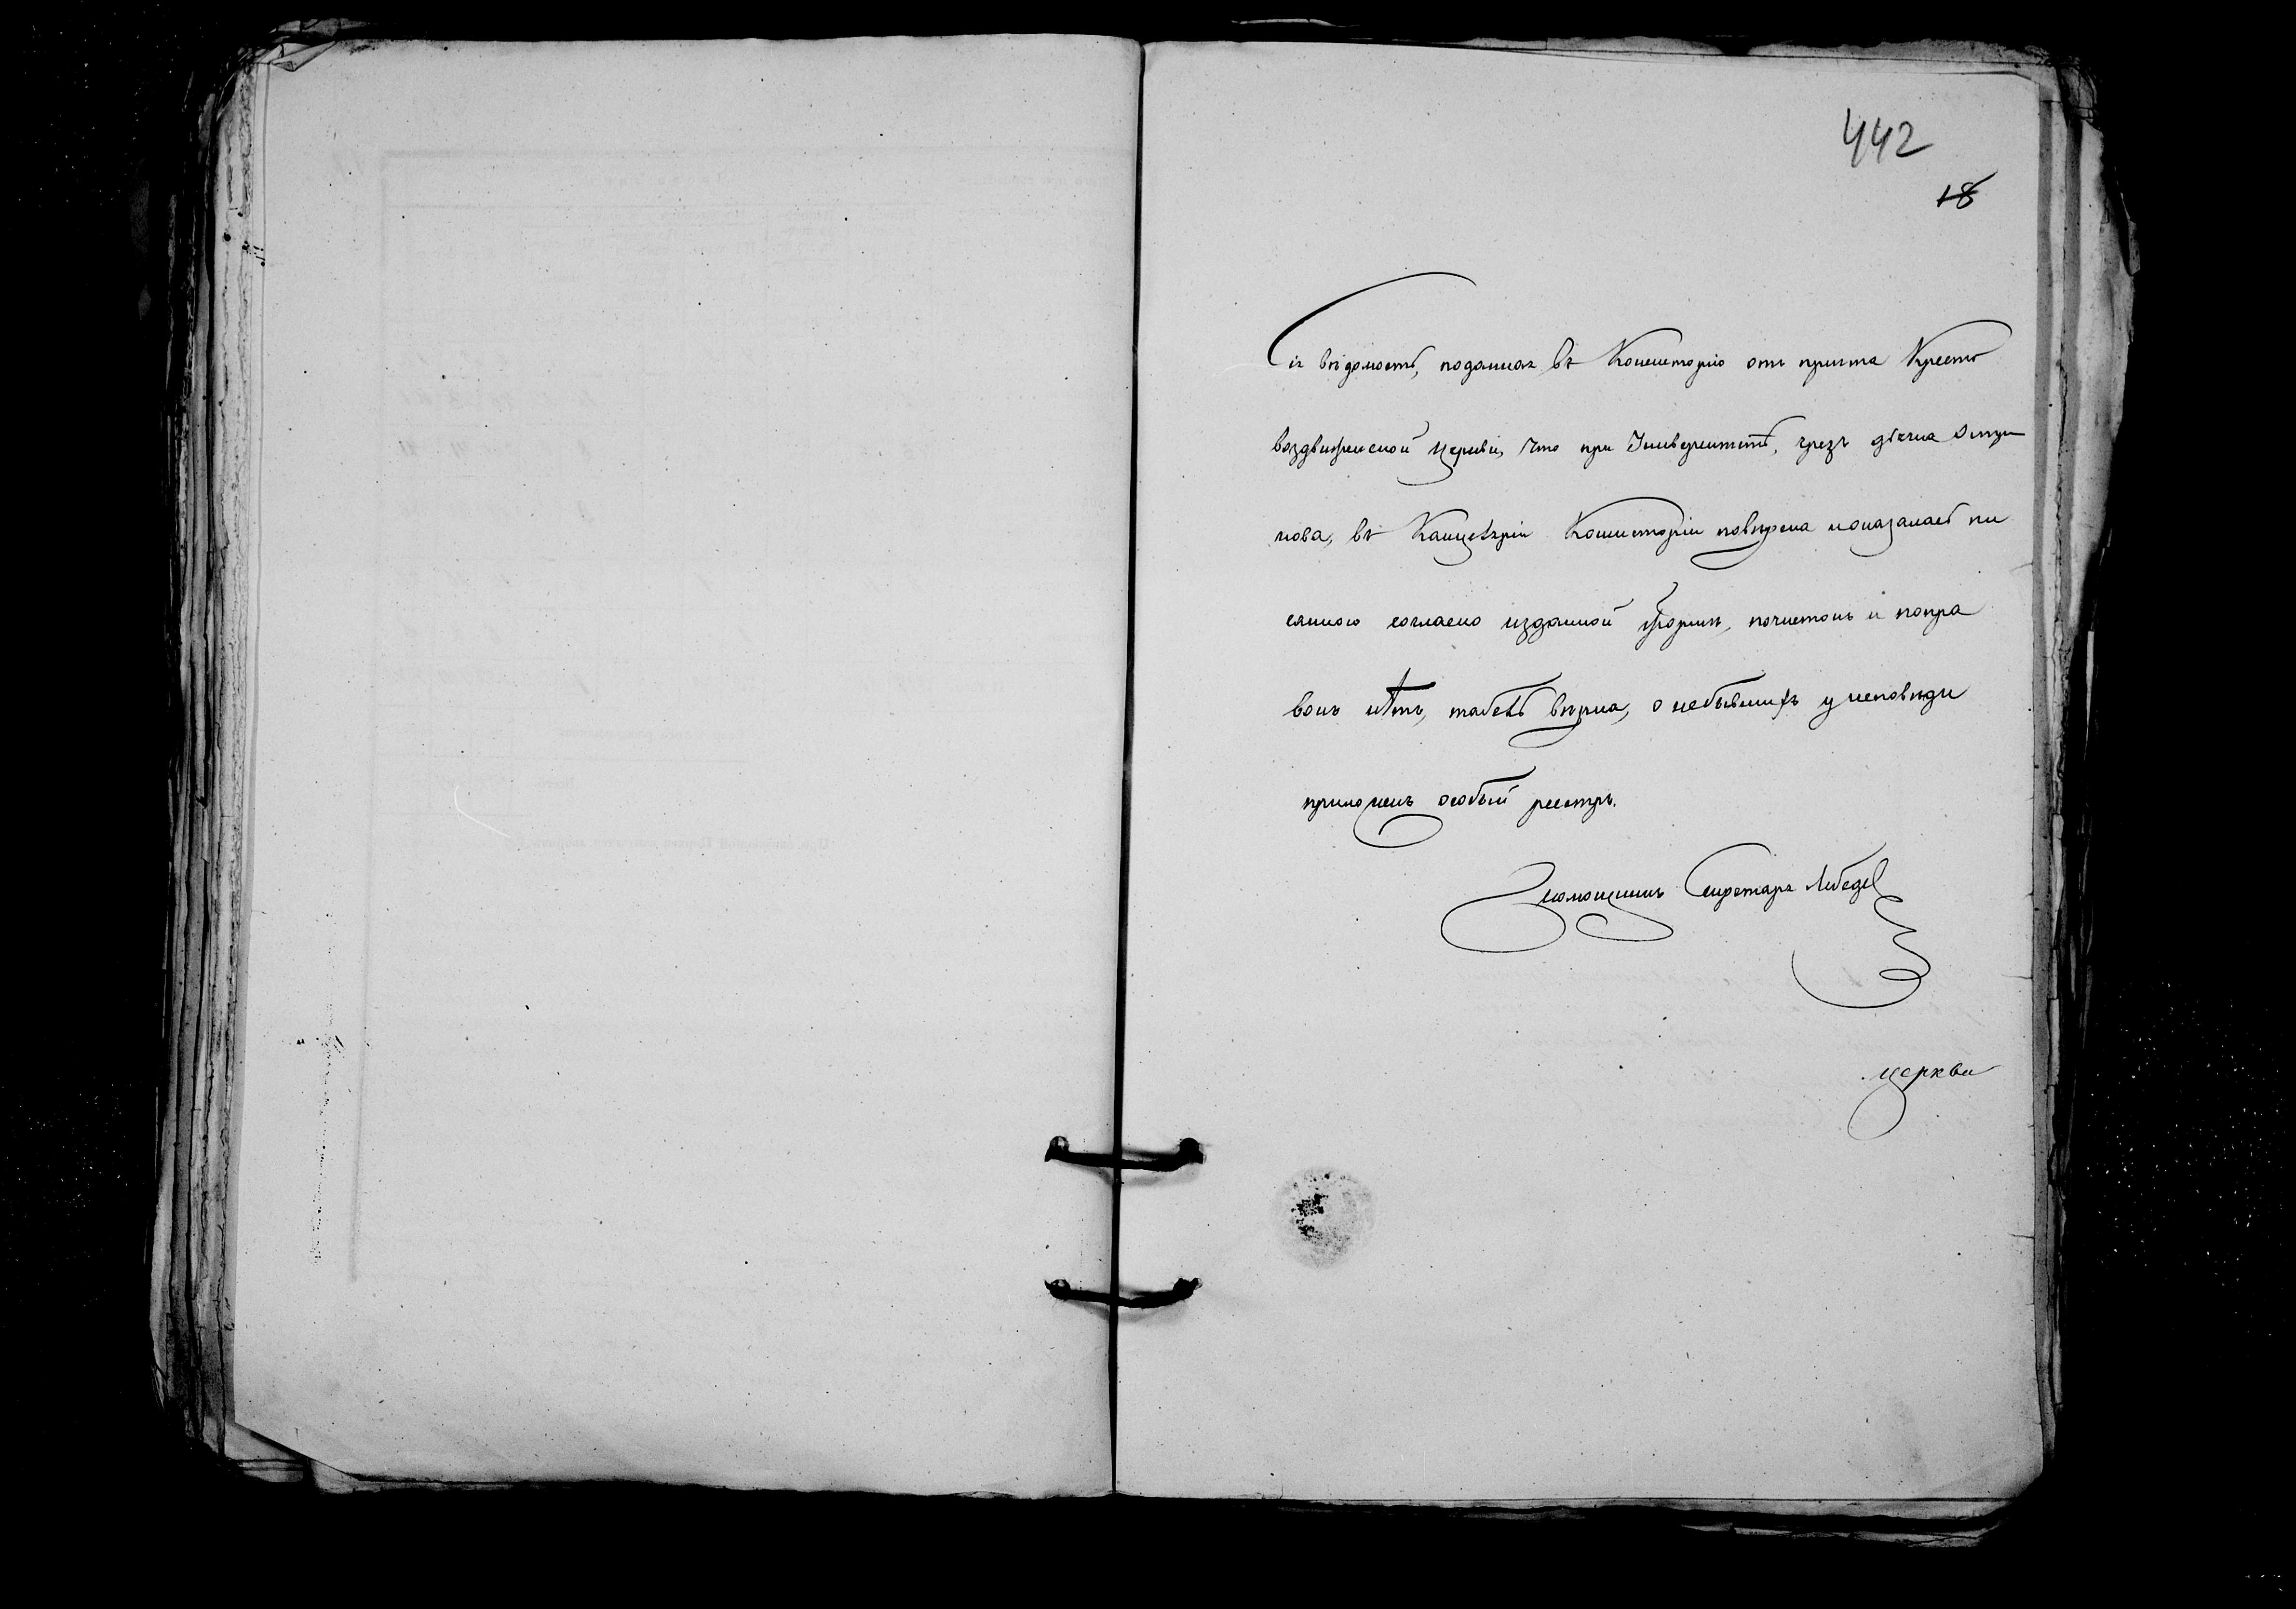 442
18
Сія вѣдомость, поданная въ Консисторію отъ причта Кресто
воздвиженской церкви, что при Университетѣ, чрезъ дьячка
нова, въ Канцеляріи Консисторіи повѣрена и оказалась пи
санною согласно изданной формѣ, почистокъ и попра
вокъ нѣтъ, табель вѣрна, о небывшихъ у исповѣди
приложенъ особый реестръ.
Помощникъ Секретаря Лебедев
церкви